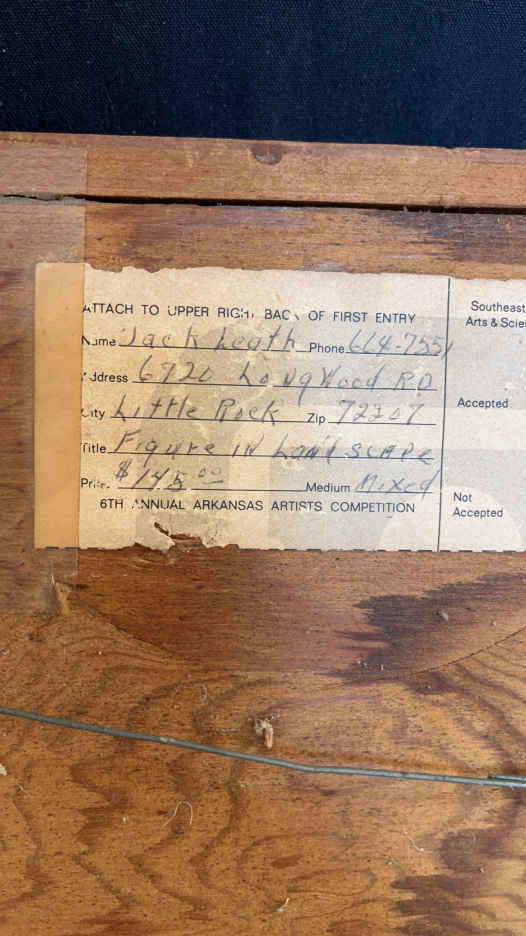 ATTACH TO UPPER RIGHT BACK OF FIRST ENTRY
Name Jack Leath Phone 664-7551
Address 6720 Longwood RD
City Little Rock Zip 72207
Title Figure IN Landscape
Price $145.00 Medium Mixed
6TH ANNUAL ARKANSAS ARTISTS COMPETITION
Southeast
Arts & Scie
Accepted
Not
Accepted